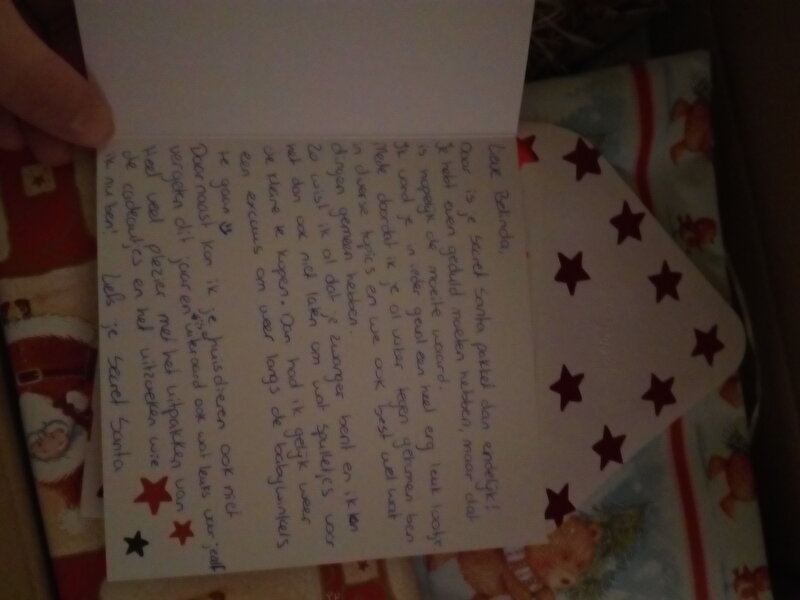 Lieve Belinda,
Daar is je Secret Santa pakket dan eindelijk!
Je hebt even geduld moeten hebben, maar dat
is hopelijk de moeite waard.
Ik vond je in ieder geval een heel erg leuk lootje
Mede doordat ik je al vaker tegen gekomen ben
in diverse topics en we ook best wel wat
dingen gemeen hebben.
Zo wist ik al dat je zwanger bent en ik kon
het dan ook niet laten om wat spulletjes voor
de kleine te kopen. Dan had ik gelijk weer
een excuus om weer langs de babywinkels
te gaan
Daarnaast kon ik je huisdieren ook niet
vergeten dit jaar en uiteraard ook wat leuks voor jezelf
Heel veel plezier met het uitpakken van
de cadeautjes en het uitzoeken wie
ik nu ben! Liefs je Secret Santa